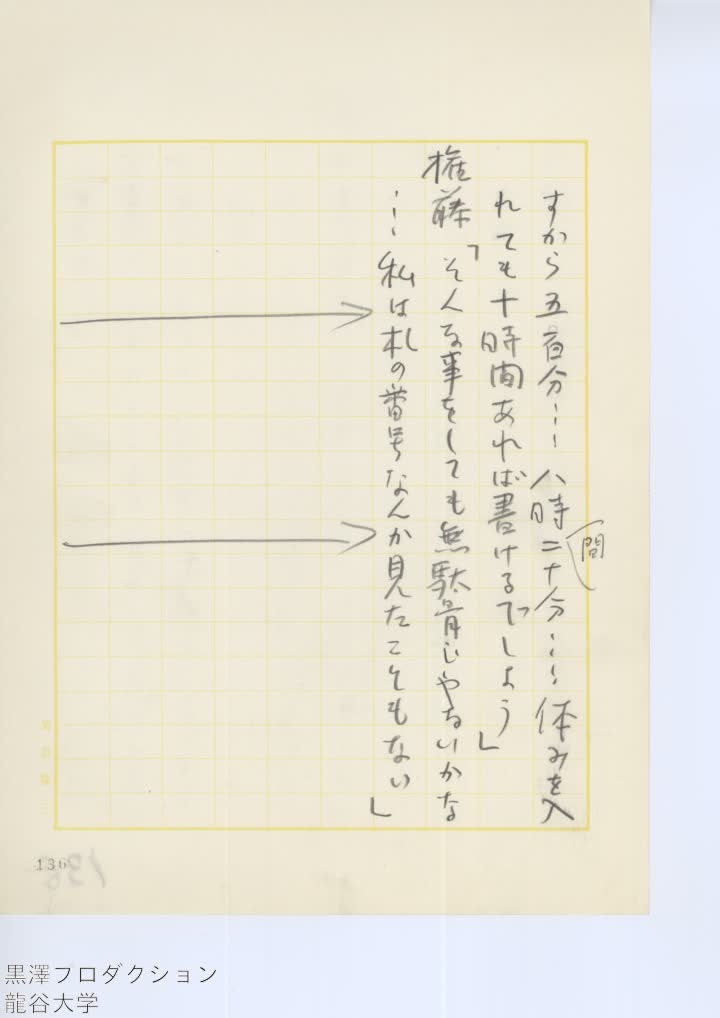 すから五百分…八時間二十分…休みを入
れても十時間あれば書けるでしよう」
権藤「そんな事をしても無駄骨じやないかな
…私は札の番号なんか見たこともない」
136
黒澤プロダクション
龍谷大学